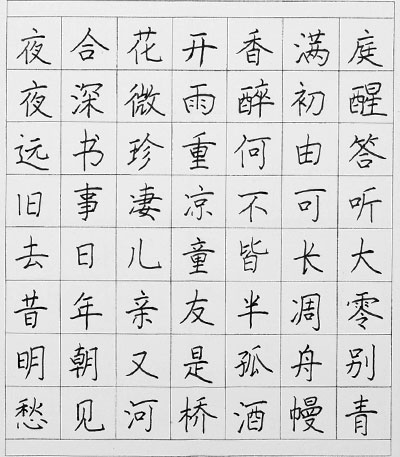 夜合花开香满庭
夜深微雨醉初醒
远书珍重何由答
旧事凄凉不可听
去日儿童皆长大
昔年亲友半凋零
明朝又是孤舟别
愁见河桥酒幔青